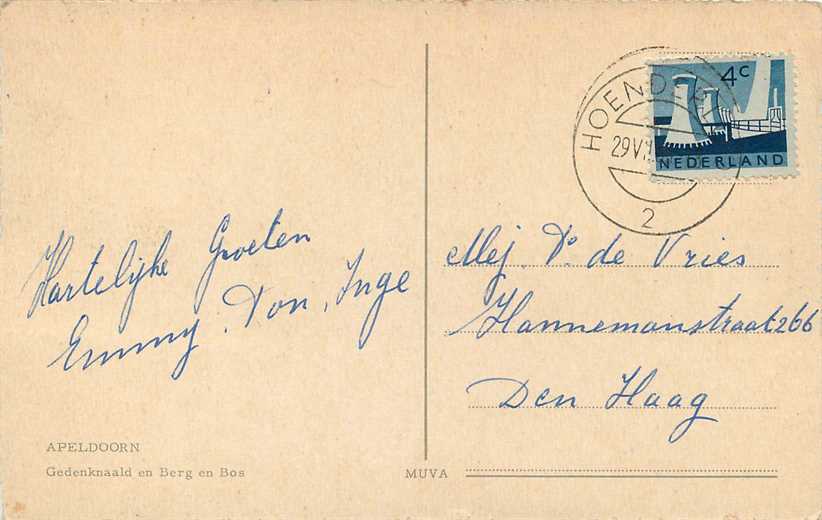 Hartelijke Groeten
Emmy, Ton, Inge
APELDOORN
Gedenknaald en Berg en Bos
MUVA
4c
NEDERLAND
29 VI
2
Mej. D. de Vries
Hannemanstraat 266
Den Haag